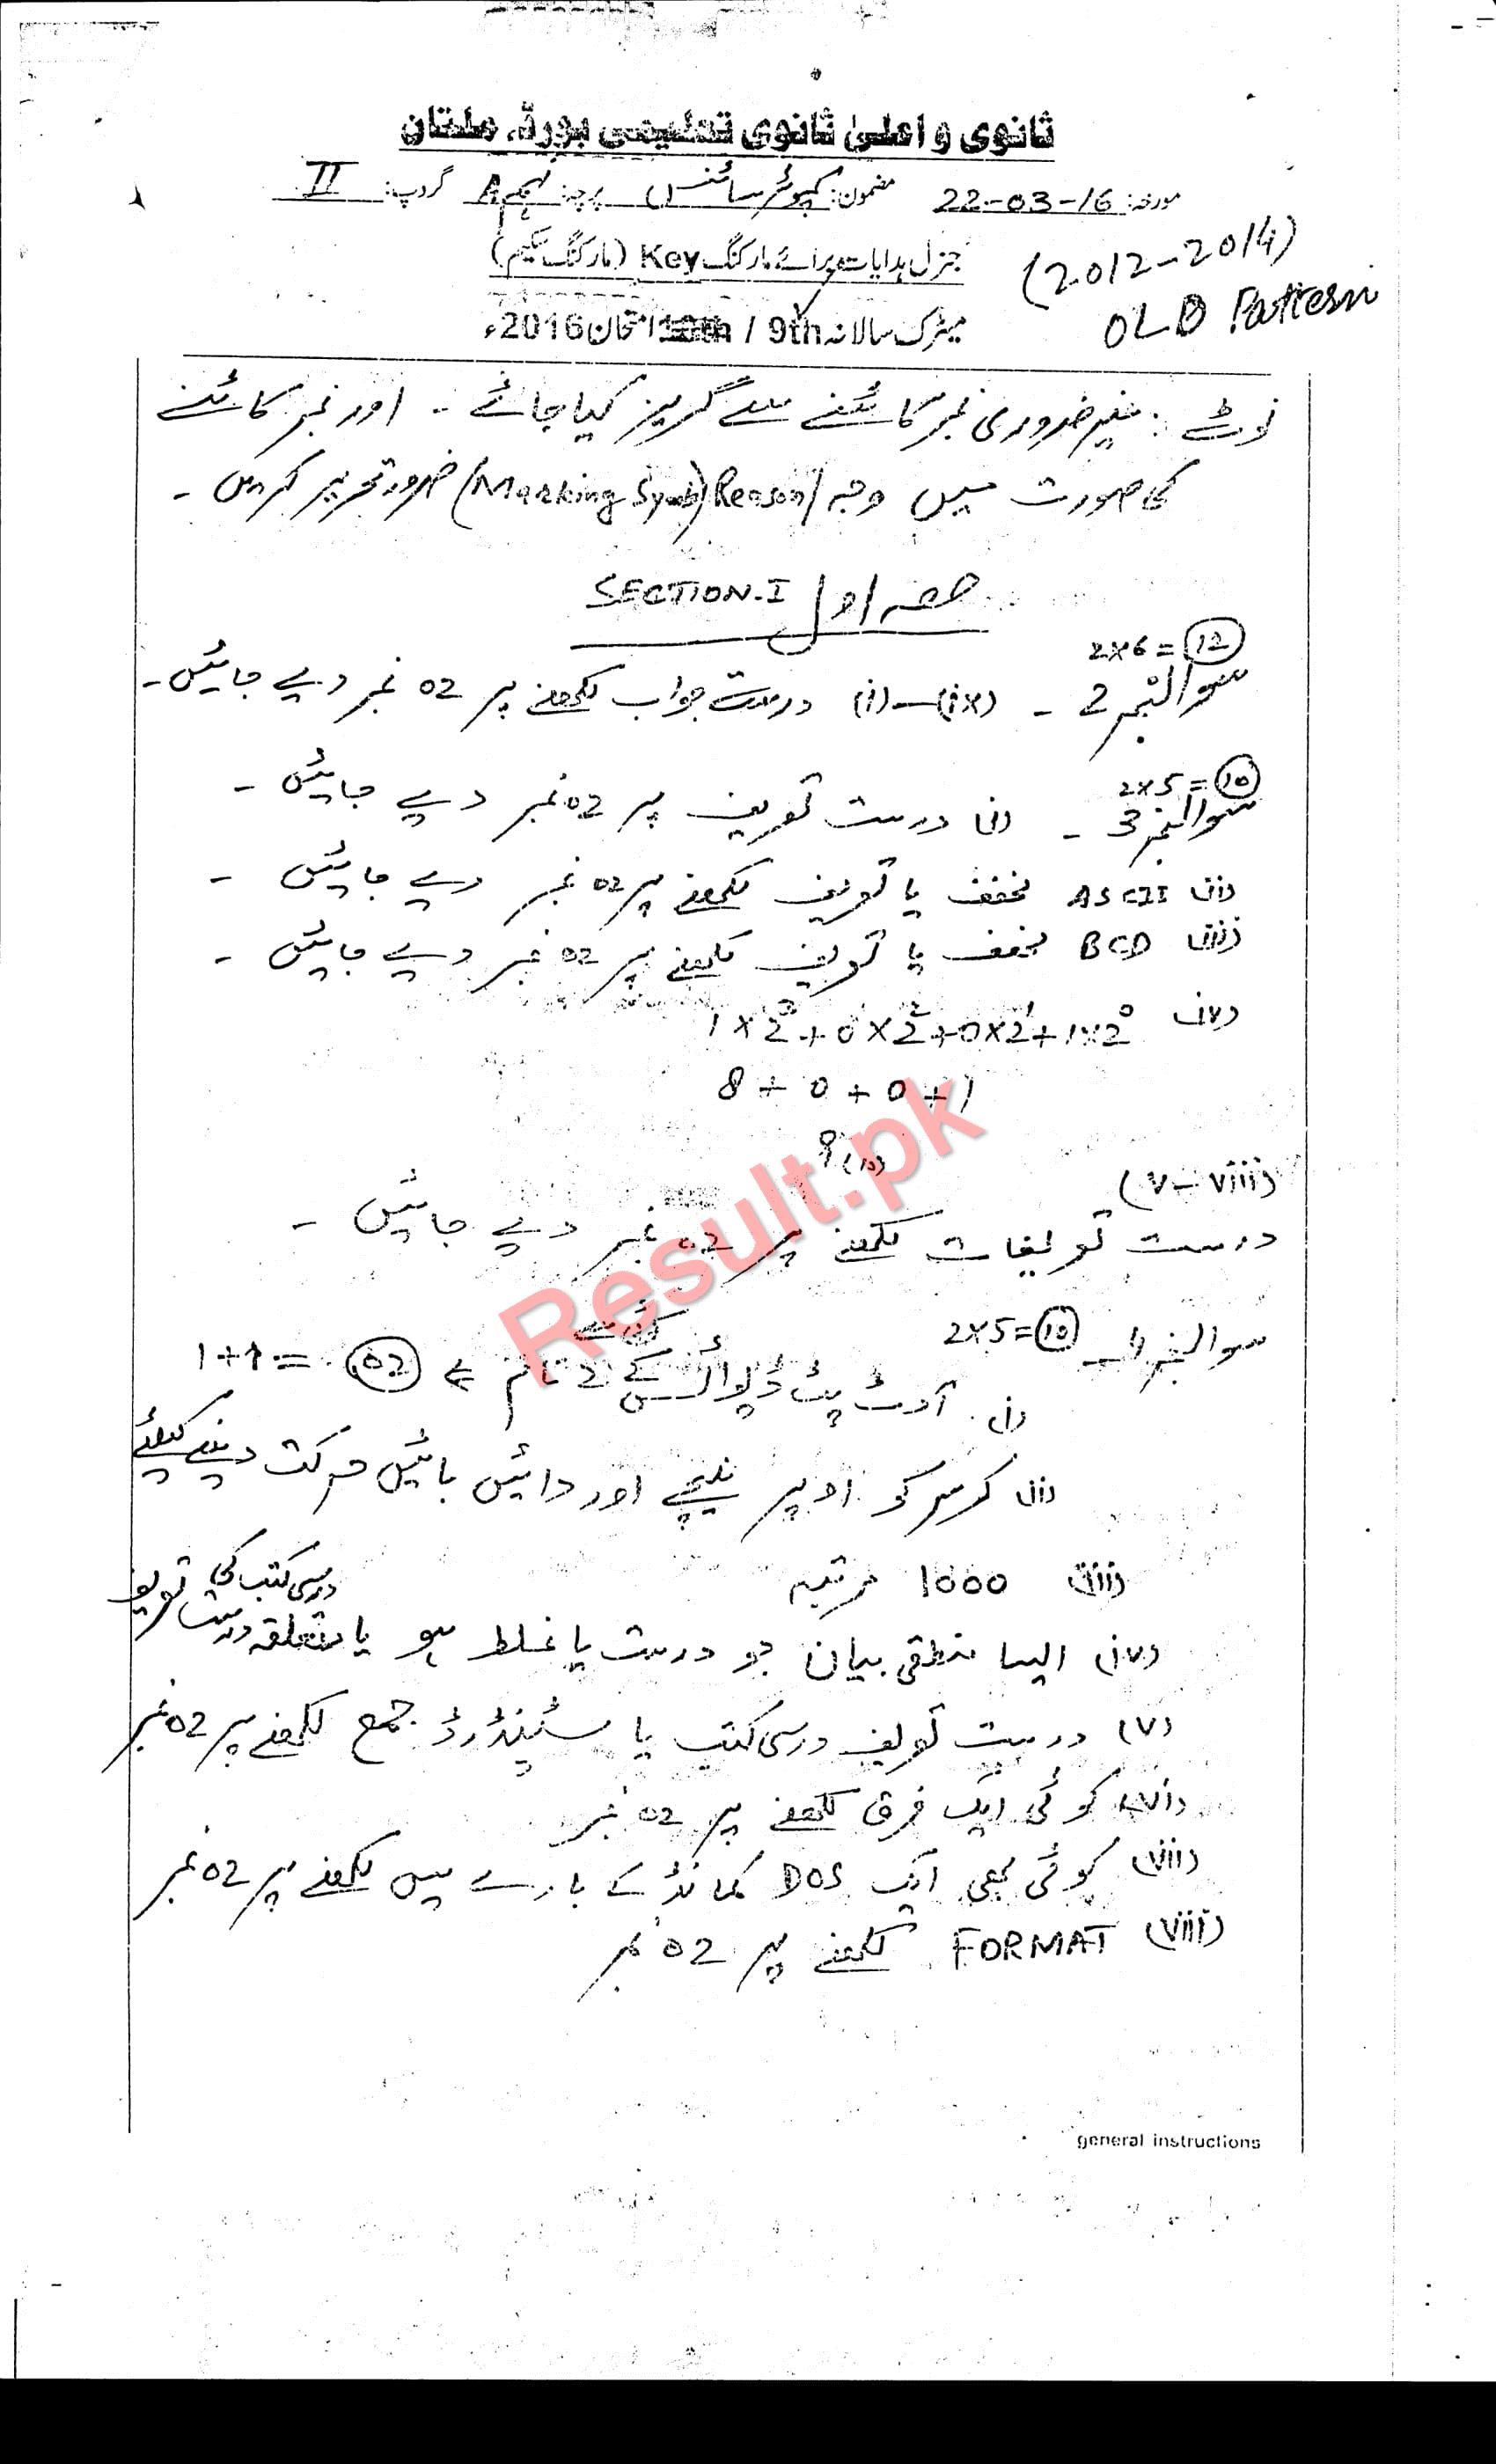 ثانوی و اعلیٰ ثانوی تعلیمی بورڈ، ملتان
مورخہ: 22-03-16 مضمون: کمپیوٹر سائنس پرچہ: نہم A گروپ: II
جنرل ہدایات برائے مارکنگ Key (مارکنگ سکیم)
(2012-2014)
OLD Pattern
میٹرک سالانہ 9th / 10th امتحان 2016ء
نوٹ: غیر ضروری نمبر کاٹنے سے گریز کیا جائے ۔ اور نمبر کاٹنے
کی صورت میں وجہ / Reason (Marking Symb) ضرور تحریر کریں ۔
حصہ اول SECTION-I
2x6=12
سوال نمبر 2 - (i)-(ix) درست جواب لکھنے پر 02 نمبر دیے جائیں۔
2x5=10
سوال نمبر 3 - (i) درست تعریف پر 02 نمبر دیے جائیں ۔
(ii) ASCII مخفف یا تعریف لکھنے پر 02 نمبر دیے جائیں ۔
(iii) BCD مخفف یا تعریف لکھنے پر 02 نمبر دیے جائیں ۔
(iv) 1×2³+0×2²+0×2¹+1×2⁰
8+0+0+1
9(10)
(v-viii)
درست تعریفات لکھنے پر 02 نمبر دیے جائیں ۔
سوال نمبر 4 - 2x5=10
(i) آؤٹ پٹ ڈیوائسس کے 2 نام 02 = 1+1
(ii) کرسر کو اوپر نیچے اور دائیں بائیں حرکت دینے کیلئے
(iii) 1000 مرتبہ
(iv) ایسا منطقی بیان جو درست یا غلط ہو یا متعلقہ درسی کتب کی درست تعریف
(v) درست تعریف درسی کتب یا سٹینڈرڈ جمع لکھنے پر 02 نمبر
(vi) کوئی ایک فرق لکھنے پر 02 نمبر
(vii) کوئی بھی ایک DOS کمانڈ کے بارے میں لکھنے پر 02 نمبر
(viii) FORMAT لکھنے پر 02 نمبر
general instructions
Result.pk